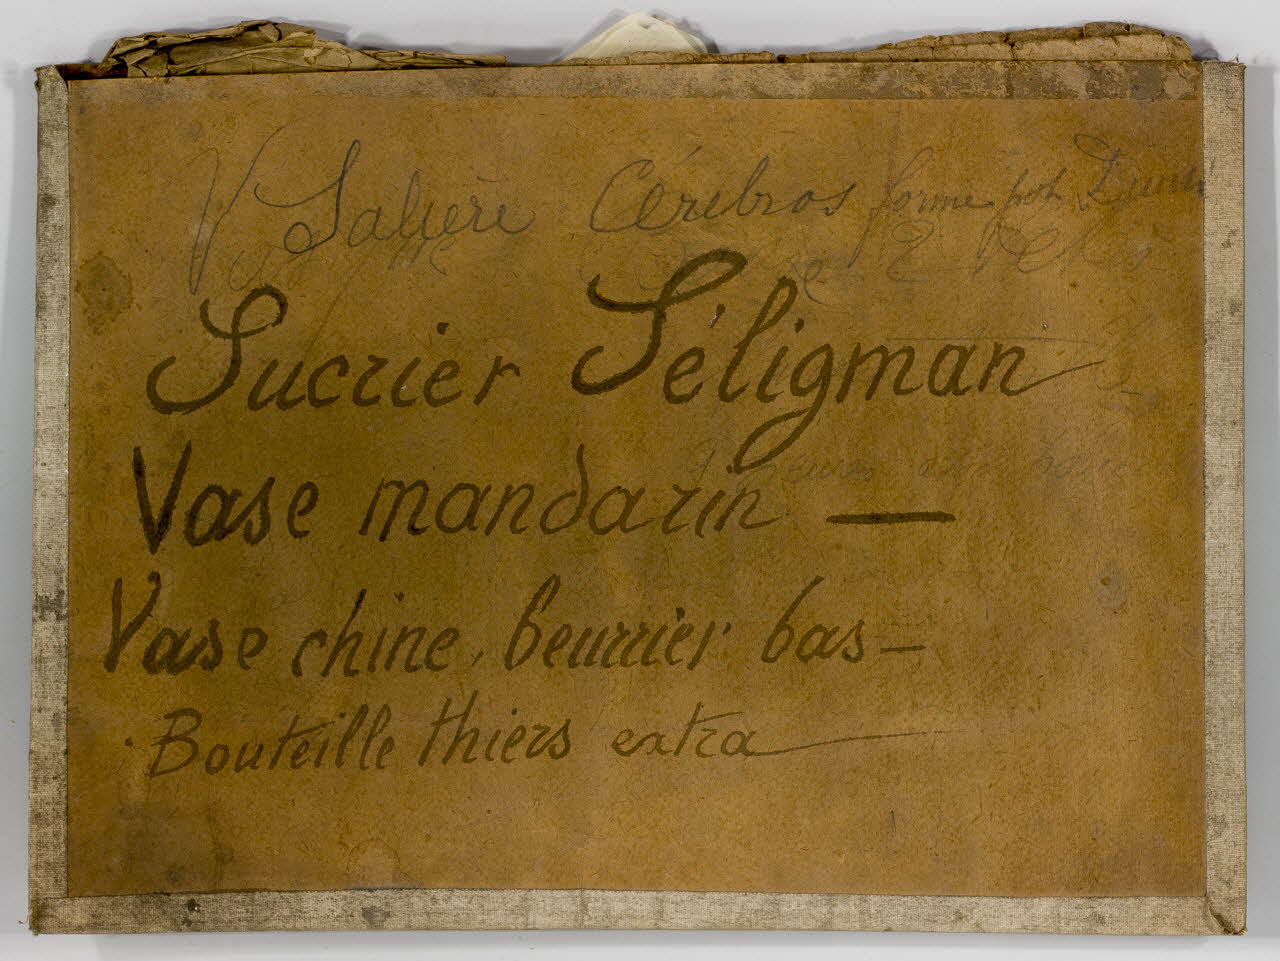 V Salière Cérébros forme pot
Sucrier Séligman
Vase mandarin —
Vase chine, beurrier bas —
Bouteille thiers extra